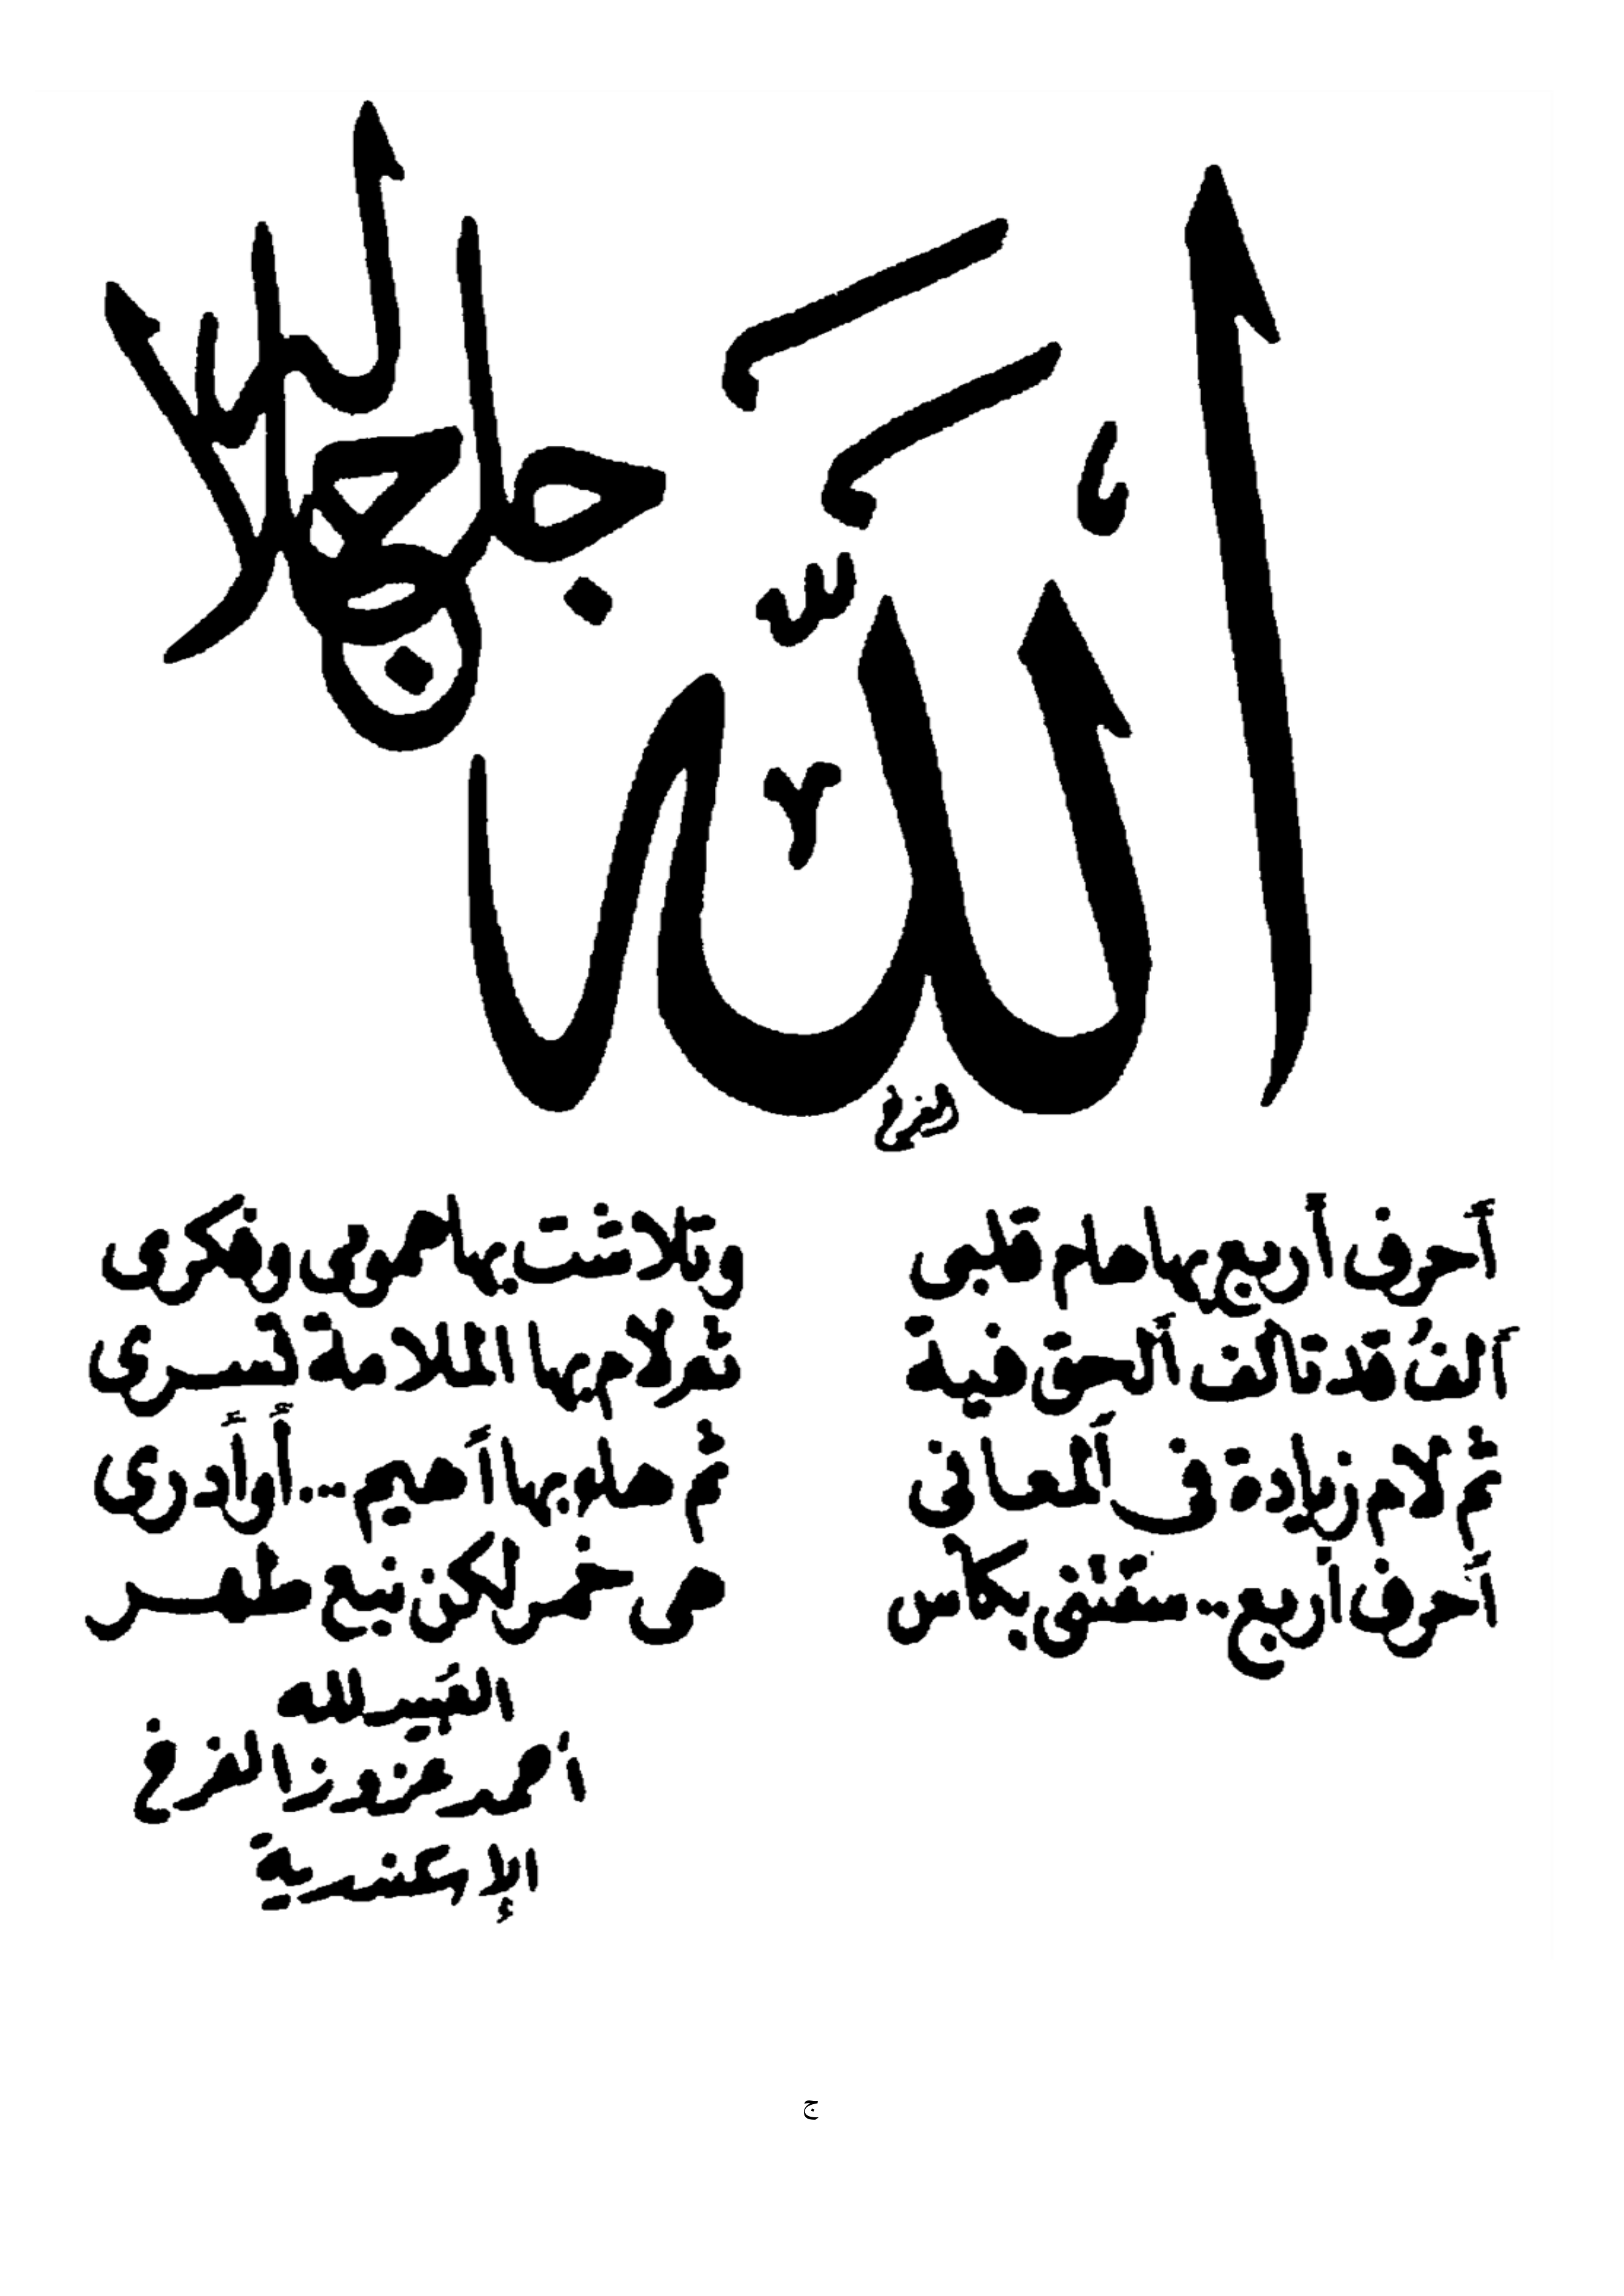 الله جل جلاله
أحرف أربع بها هام قلبى وتلاشت بها همومى وفكرى
ألفٌ قد تألف ألحق فيه ثم لام بها الملامة تسرى
ثم لام زيادة فى ألمعانى ثم هاء بها أهيم ... أو أدرى
أحرف أربع .. ستتنق بكأس هى خمر لكن نبع طهر
العبد لله
أحمد
الإسكندرية
ج